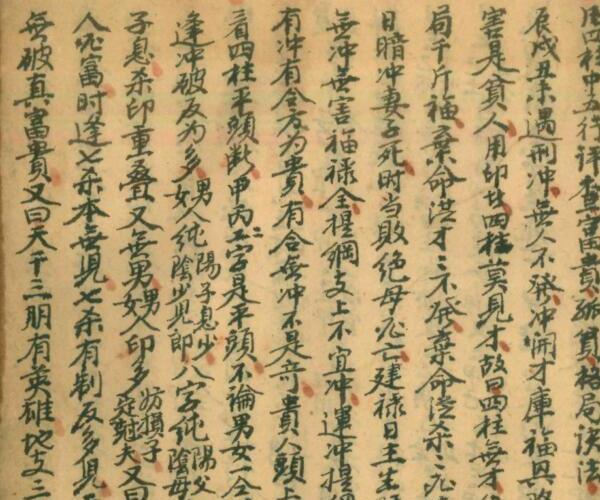 用四柱中五行评查富貴孤貧格局诀法
辰戌丑未遇刑冲無人不發冲開才庫福與
害是貧人用印廿四柱莫見才故曰四柱無才
局千斤福棄命從才〻不發棄命從杀〻必
日暗冲妻子死时当敗絶母必亡建禄日主生
無冲無害福禄全提綱支上不宜冲運冲提綱
有冲有合方为貴有合無冲不是奇貴人頭上
看四柱平頭断甲丙二字是平頭不論男女一合
逢冲破反为多男八纯陽子息少女八纯陰少兒郎八字纯陽父纯陰母
子息杀印重叠又無男女人印多妨損子定尅夫又曰
人必富时逢七杀本無児七杀有制反多児
無破真富貴又曰天干三朋有英雄地支三